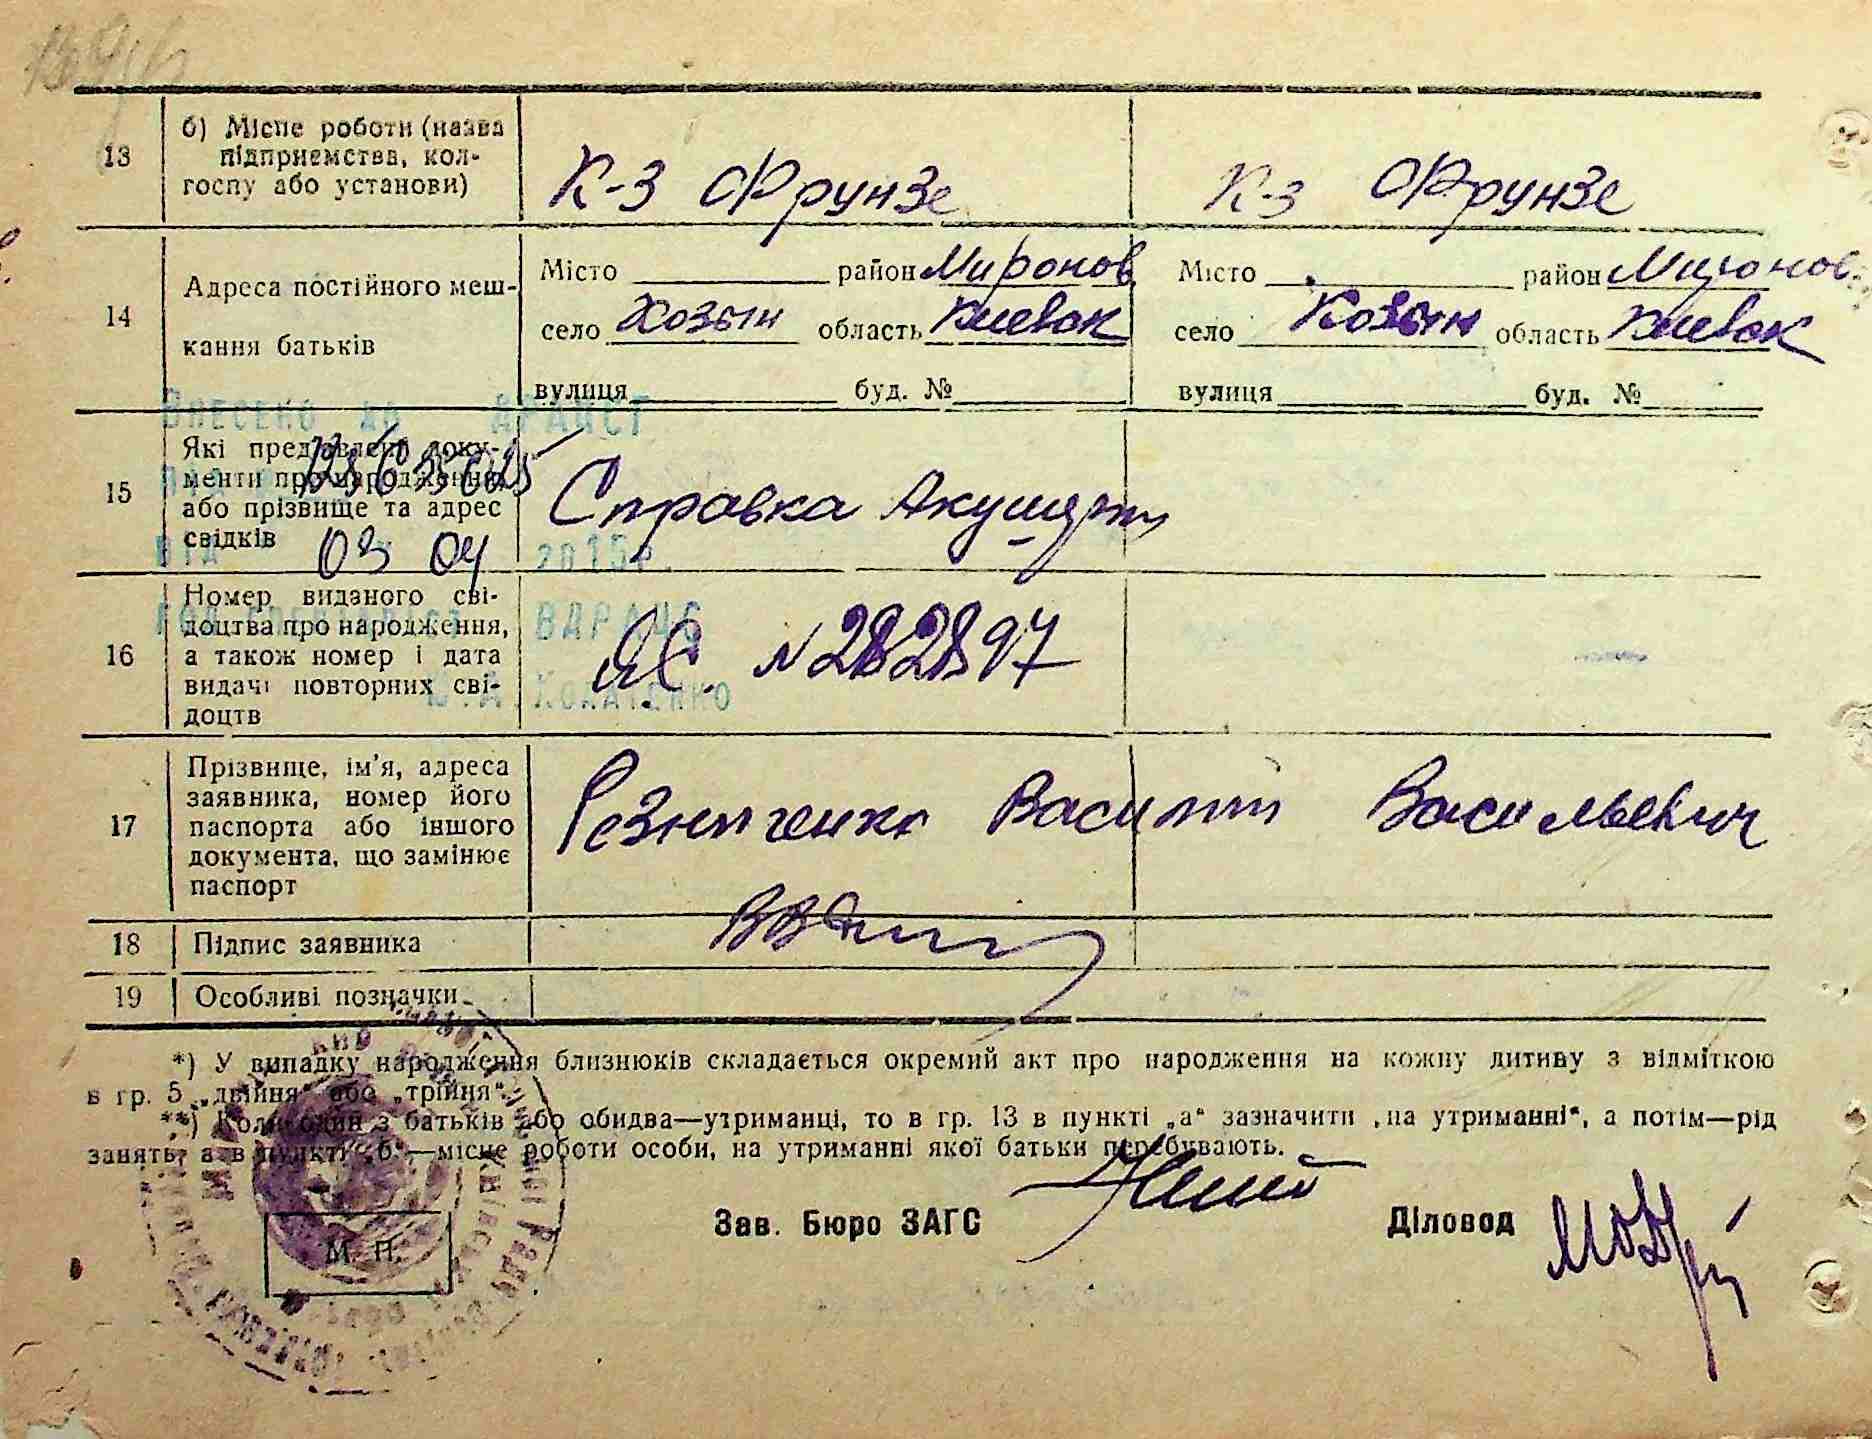 13 б) Місце роботи (назва
підприємства, кол-
госпу або установи)
К-з Фрунзе К-з Фрунзе
14 Адреса постійного меш-
кання батьків
Місто район Миронов. Місто район Миронов.
село Козын область Киевск село Козын область Киевск
вулиця буд. № вулиця буд. №
Внесено до ДРАЦСГ
15 Які представлені доку-
менти про народження
або прізвище та адрес
свідків
Справка Акушерки
від 03 04 2015р.
16 Номер виданого сві-
доцтва про народження,
а також номер і дата
видачі повторних сві-
доцтв
ЯС. №282897
ВДРАЦС
17 Прізвище, ім'я, адреса
заявника, номер його
паспорта або іншого
документа, що замінює
паспорт
Резниченко Василий Васильевич
18 Підпис заявника
19 Особливі позначки
*) У випадку народження близнюків складається окремий акт про народження на кожну дитину з відміткою
в гр. 5 „двійня“ або „трійня“.
**) Коли один з батьків або обидва—утриманці, то в гр. 13 в пункті „а“ зазначити „на утриманні“, а потім—рід
занять, а в пункті „б“—місце роботи особи, на утриманні якої батьки перебувають.
Зав. Бюро ЗАГС Діловод
М. П.